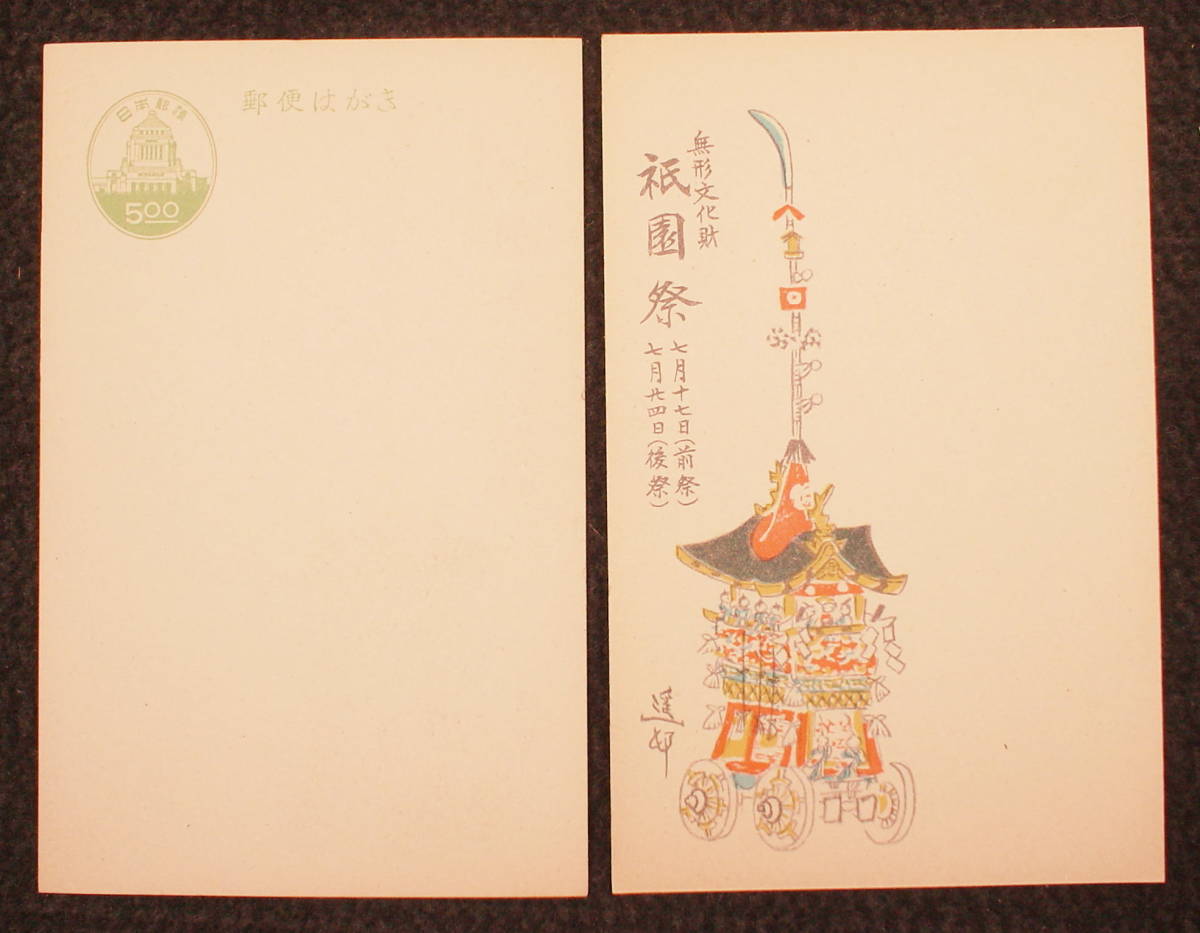 日本郵便
5.00
郵便はがき
無形文化財
祇園祭
七月十七日(前祭)
七月廿四日(後祭)
遙邨